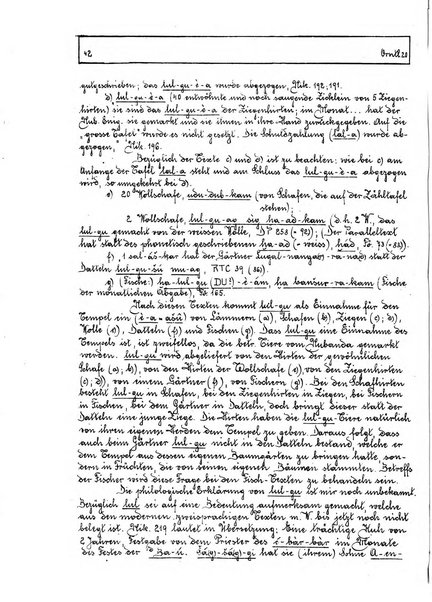 42 Orntl 20
gutgeschrieben; das lul-gu-è-a wurde abgezogen, Nik. 192, 191.
d) lul-gu-è-a (40 entwöhnte und noch saugende Zicklein von 5 Ziegen-
hirten) "sie sind das lul-gu-è-a der Ziegenhirten; im Monat... hat der
Hub. Enig. sie gemarkt und sie ihnen in ihre Hand zurückgegeben. Auf die
"grosse Tafel" wurde es nicht gesetzt. Die Schuldzahlung (lal-a) wurde ab-
gezogen," Nik. 196.
Bezüglich der Texte c) und d) ist zu beachten: wie bei c) am
Anfange der Tafel lal-a steht und am Schluss das lul-gu-è-a abgezogen
wird, so umgekehrt bei d).
e) 20 Wollschafe, udu-dub-kam (von Schafen, die auf der Zähltafel
stehen);
2 Wollschafe, lul-gu-ag sig ha-ad-kam (d.h. 2 W., das
lul-gu gemacht von der weissen Wolle, DP 258 (= 92); Der Paralleltext
hat statt des phonetisch geschriebenen ha-ad (= weiss), hád, Fö 73 (= 83).
f) 1 sal-áš-kar hat der Gärtner Lugal- statt der
Datteln lul-gu-šú mu-ag, RTC 39 (86).
g) (Fische:) ha-lul-gu (DU?)-è-ám ha banšur-ra-kam (Fische
der monatlichen Abgabe), Fö 165.
Nach diesen Texten kommt lul-gu als Einnahme für den
Tempel ein (è-a = aṣû) von Lämmern (a), Schafen (b), Ziegen (c; d),
Wolle (e), Datteln (f) und Fischen (g). Dass lul-gu eine Einnahme des
Tempels ist, ist zweifellos, da die betr. Tiere vom Nubanda gemarkt
werden. lul-gu wird abgeliefert von den Hirten der gewöhnlichen
Schafe (a; b), von den Hirten der Wollschafe (e), von den Ziegenhirten
(c; d), von einem Gärtner (f), von Fischern (g). Bei den Schafhirten
besteht lul-gu in Schafen, bei den Ziegenhirten in Ziegen, bei Fischern
in Fischen, bei dem Gärtner in Datteln, doch bringt dieser statt der
Datteln eine junge Ziege. Die Hirten haben die lul-gu-Tiere natürlich
von ihren eigenen Herden dem Tempel zu geben. Daraus folgt, dass
auch beim Gärtner lul-gu nicht in den Datteln bestand, welche er
dem Tempel aus dessen eigenen Baumgärten zu bringen hatte, son-
dern in Früchten, die von seinen eigenen Bäumen stammten. Betreffs
der Fischer wird diese Frage bei den Fisch-Texten zu behandeln sein.
Die philologische Erklärung von lul-gu ist mir noch unbekannt.
Bezüglich lul sei auf eine Bedeutung aufmerksam gemacht, welche
aus den modernen, zweisprachigen Texten m. W. bis jetzt noch nicht
belegt ist. Nik. 219 lautet in Übersetzung: Eine trächtige Kuh von
2 Jahren, Festgabe von dem Priester des è-bár-bár im Monate
des Festes der Ba-ú. hat sie (ihrem) Sohne A-en-